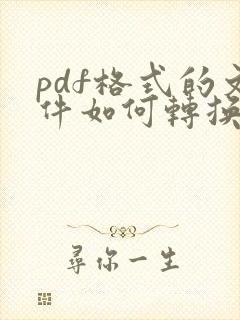 pdf格式的文
件如何轉換
尋你一生